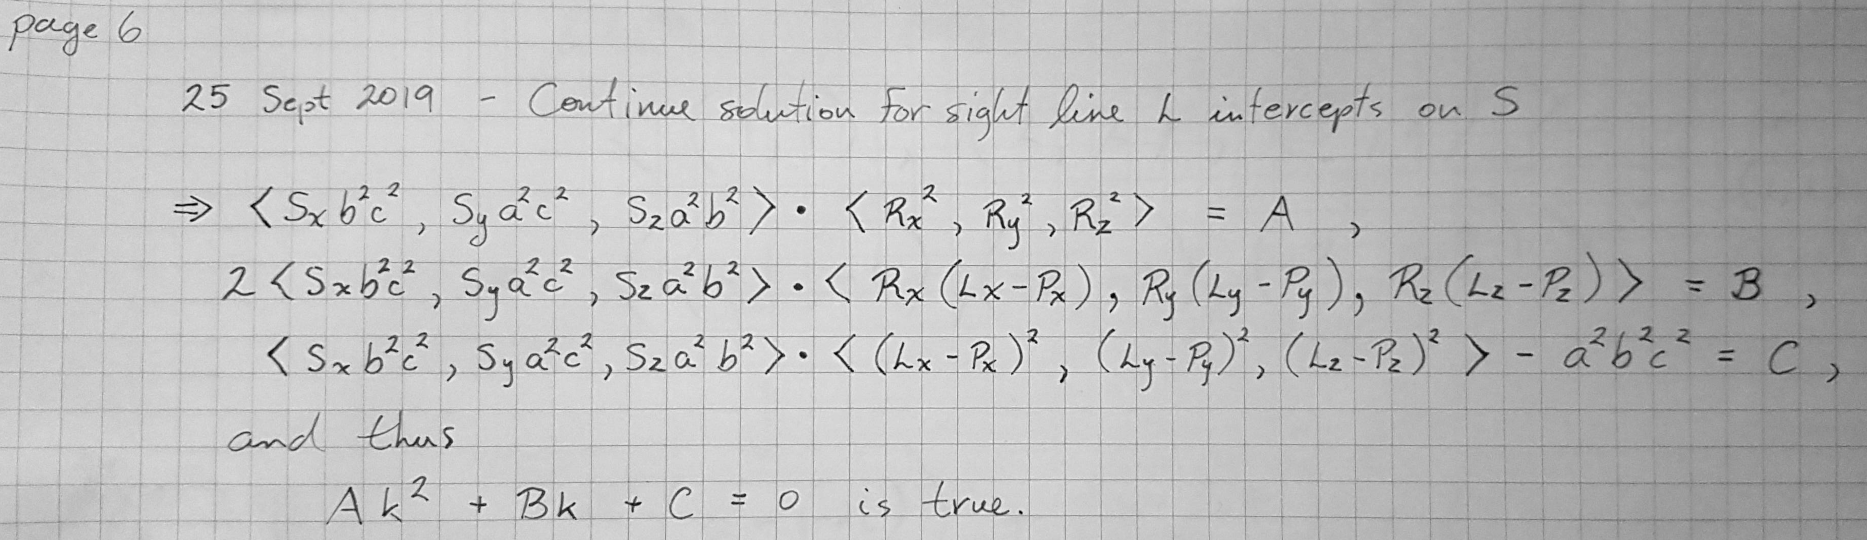 page 6
25 Sept 2019 - Continue solution for sight line L intercepts on S
⇒ ⟨Sx b²c², Sy a²c², Sz a²b²⟩ • ⟨Rx², Ry², Rz²⟩ = A ,
2⟨Sx b²c², Sy a²c², Sz a²b²⟩ • ⟨Rx(Lx-Px), Ry(Ly-Py), Rz(Lz-Pz)⟩ = B ,
⟨Sx b²c², Sy a²c², Sz a²b²⟩ • ⟨(Lx-Px)², (Ly-Py)², (Lz-Pz)²⟩ - a²b²c² = C ,
and thus
Ak² + Bk + C = 0 is true.